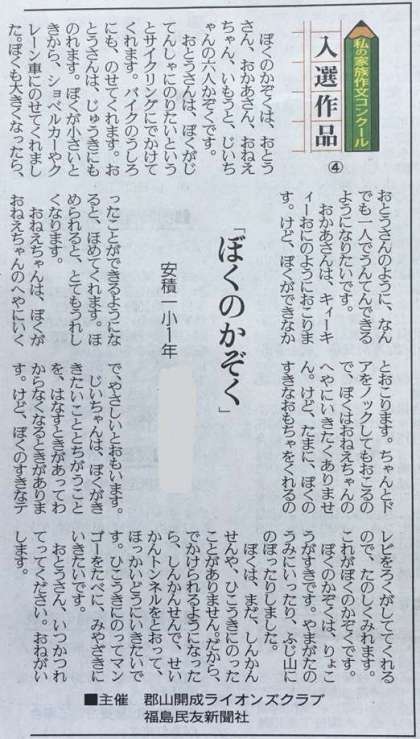 私の家族作文コンクール
入選作品
④
ぼくのかぞくは、おとう
さん、おかあさん、おねえ
ちゃん、いもうと、じいち
ゃんの六人かぞくです。
おとうさんは、ぼくがじ
てんしゃにのりたいという
とサイクリングにでかけて
くれます。バイクのうしろ
にも、のせてくれます。お
とうさんは、じゅうきにも
のれます。ぼくが小さいと
きから、ショベルカーやク
レーン車にのせてくれまし
た。ぼくも大きくなったら、
おとうさんのように、なん
でも一人でうんてんできる
ようになりたいです。
おかあさんは、キィーキ
ィーおにのようにおこりま
す。けど、ぼくができなか
「ぼくのかぞく」
安積一小1年
ったことができるようにな
ると、ほめてくれます。ほ
められると、とてもうれし
くなります。
おねえちゃんは、ぼくが
おねえちゃんのへやにいく
とおこります。ちゃんとド
アをノックしてもおこるの
で、ぼくはおねえちゃんの
へやにいきたくありませ
ん。けど、たまに、ぼくの
すきなおもちゃをくれるの
で、やさしいとおもいます。
じいちゃんは、ぼくがき
きたいこととちがうこと
を、はなすときがあってわ
からなくなるときがありま
す。けど、ぼくのすきなテ
レビをろくがしててくれる
ので、たのしくみれます。
これがぼくのかぞくです。
ぼくのかぞくは、りょこ
うがすきです。やまがたの
うみにいったり、ふじ山に
のぼったりしました。
ぼくは、まだ、しんかん
せんや、ひこうきにのった
ことがありません。だから、
でかけられるようになった
ら、しんかんせんで、せい
かんトンネルをとおって、
ほっかいどうにいきたいで
す。ひこうきにのってマン
ゴーをたべに、みやざきに
いきたいです。
おとうさん、いつかつれ
てってください。おねがい
します。
■主催 郡山開成ライオンズクラブ
福島民友新聞社